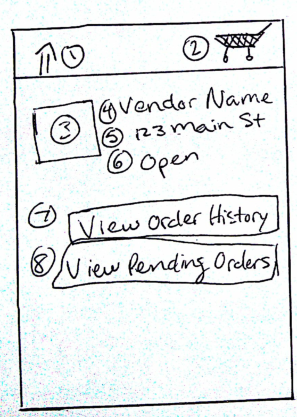 1 2
3
4 Vendor Name
5 123 main St
6 Open
7 View Order History
8 View Pending Orders